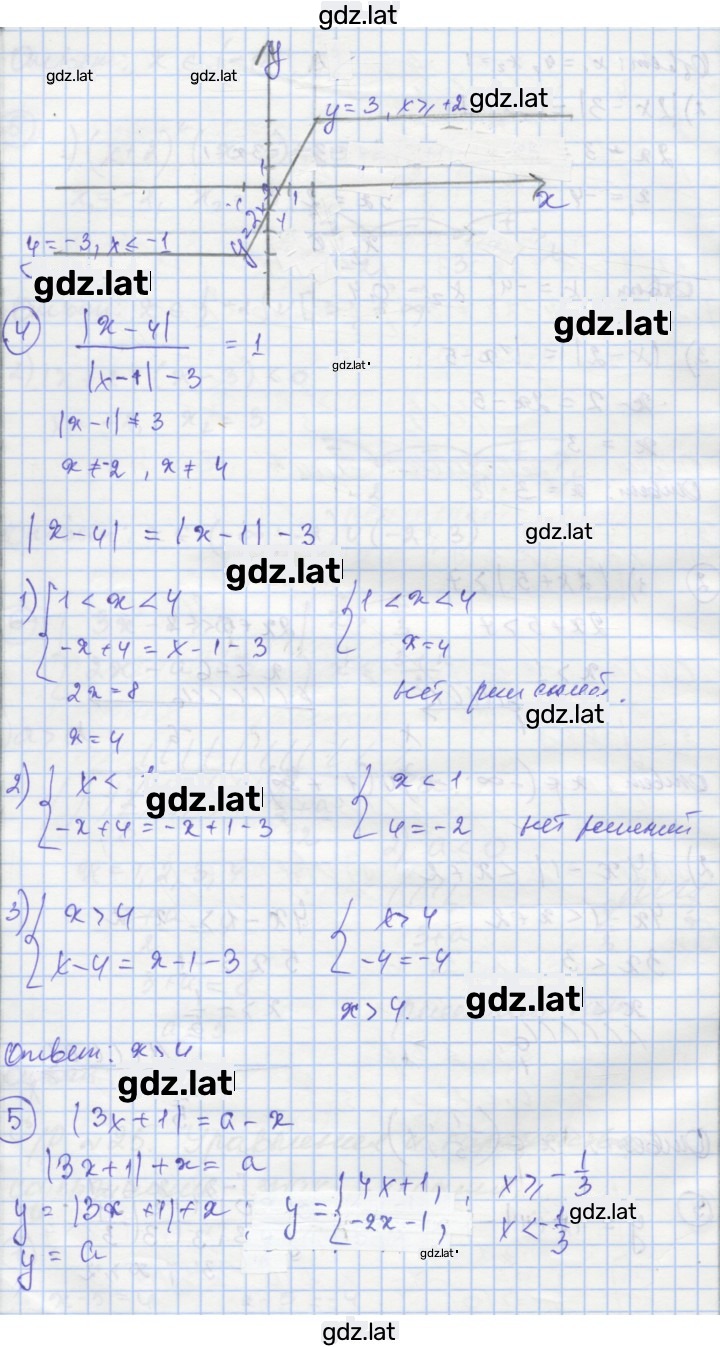 gdz.lat
y
gdz.lat gdz.lat
y = 3, x ≥ +2 gdz.lat
-1 1
x
y = -3, x ≤ -1
gdz.lat
gdz.lat
4 |x - 4| / (|x - 1| - 3) = 1
gdz.lat
|x - 1| ≠ 3
x ≠ -2, x ≠ 4
|x - 4| = |x - 1| - 3
gdz.lat
gdz.lat
1) { 1 < x < 4 { 1 < x < 4
-x + 4 = x - 1 - 3 x = 4
2x = 8 нет решений.
gdz.lat
x = 4
2) { x < { x < 1
gdz.lat
-x + 4 = -x + 1 - 3 4 = -2 нет решений
3) { x > 4 { x > 4
x - 4 = x - 1 - 3 -4 = -4
x > 4. gdz.lat
Ответ: x > 4
gdz.lat
5 |3x + 1| = a - x
|3x + 1| + x = a
y = |3x + 1| + x, y = { 4x + 1, x ≥ -1/3
-2x - 1, x < -1/3
gdz.lat
y = a
gdz.lat
gdz.lat